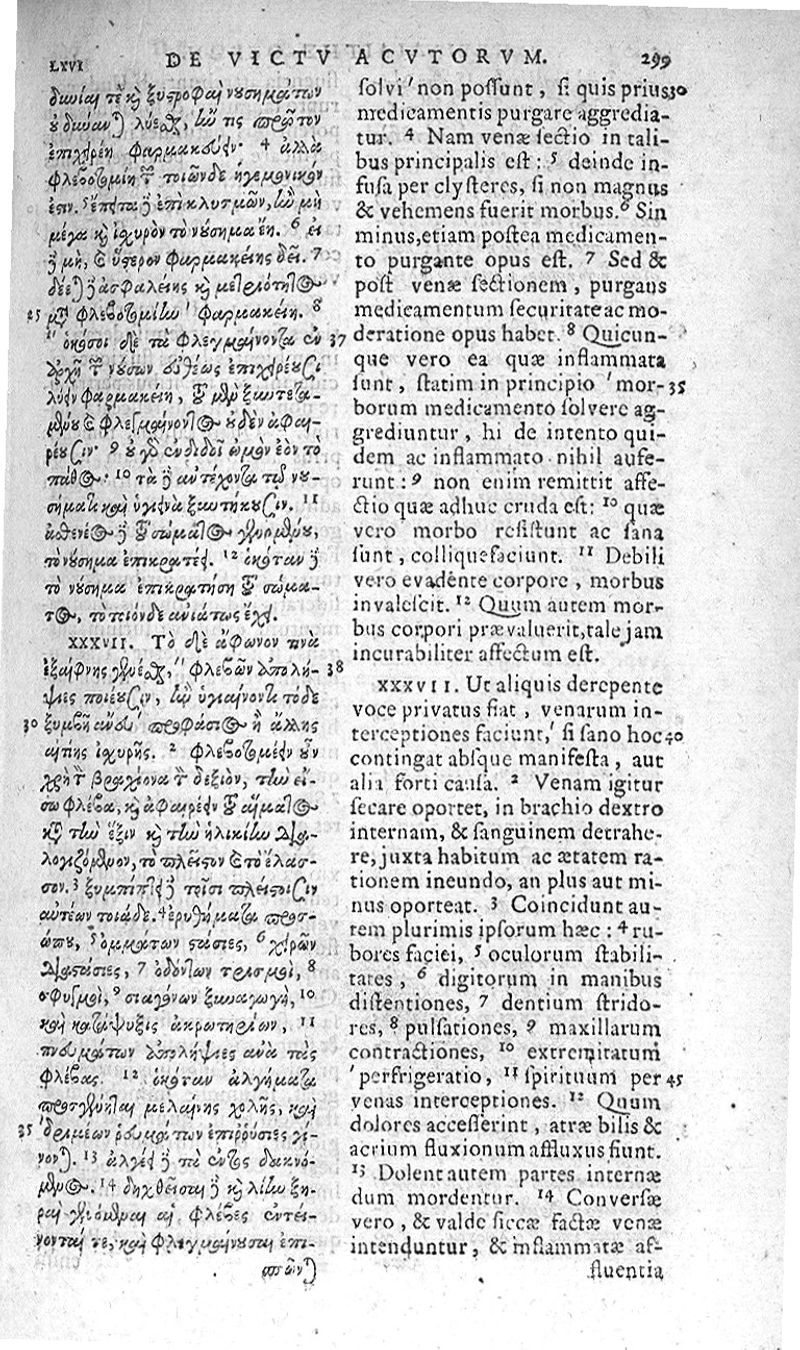 LXVI DE VICTV ACVTORVM. 299
δίῃ τε καὶ ξυστροφαὶ νουσημάτων
οὐ δύναν) λύεσθ, ἢν τις πρῶτον
ἐπιχειρέη φαρμακεύειν· 4 ἀλλὰ
φλεβοτομίη τῶν τοιῶνδε ἡγεμονικόν
ἐστιν. 5 ἔπειτα ἐπὶ κλυσμῶν, ἢν μὴ
μέγα καὶ ἰσχυρὸν τὸ νούσημα ἔῃ. 6 εἰ
δὲ μὴ, καὶ ὕστερον φαρμακείης δεῖ. 7
δέε) δὲ ἀσφαλείης καὶ μετριότητος
25 μετὰ φλεβοτομίην ' φαρμακείη. 8
" ὁκόσοι δὲ τὰ φλεγμαίνοντα ἐν 37
ἀρχῇ τῶν νούσων εὐθέως ἐπιχειρέουσι
λύειν φαρμακείῃ, τοῦ μὲν ξυντετα-
μένου καὶ φλεγμαίνοντος οὐδὲν ἀφαι-
ρέουσιν· 9 οὐ γὰρ ἐνδιδοῖ ὠμὸν ἐὸν τὸ
πάθος· 10 τὰ δὲ ἀντέχοντα τῷ νου-
σήματι καὶ ὑγιεινὰ ξυντήκουσιν. 11
ἀσθενέος δὲ τοῦ σώματος γενομένου,
τὸ νούσημα ἐπικρατέει. 12 ὁκόταν δὲ
τὸ νούσημα ἐπικρατήσῃ τοῦ σώμα-
τος, τὸ τοιόνδε ἀνιάτως ἔχει.
XXXVII. Τὸ δὲ ἄφωνον τινὰ
ἐξαίφνης γενέσθ, " φλεβῶν ἀπολή- 38
ψιες ποιέουσιν, ἢν ὑγιαίνοντι τόδε
30 ξυμβῇ ἄνευ ' προφάσιος ἢ ἄλλης
αἰτίης ἰσχυρῆς. 2 φλεβοτομέειν οὖν
χρὴ τὸν βραχίονα τὸν δεξιὸν, τὴν εἴ-
σω φλέβα, καὶ ἀφαιρέειν τοῦ αἵματος
κατὰ τὴν ἕξιν καὶ τὴν ἡλικίην δια-
λογιζόμενον, τὸ πλεῖστον καὶ τὸ ἔλασ-
σον. 3 ξυμπίπτει δὲ τοῖσι πλείστοισιν
αὐτέων τοιάδε. 4 ἐρυθήματα προσ-
ώπου, 5 ὀμμάτων στάσιες, 6 χειρῶν
διαστάσιες, 7 ὀδόντων τρισμοὶ, 8
σφυγμοὶ, 9 σιαγόνων ξυναγωγὴ, 10
καὶ κατάψυξις ἀκρωτηρίων, 11
πνευμάτων ἀπολήψιες ἀνὰ τὰς
φλέβας. 12 ὁκόταν ἀλγήματα
προσγένηται μελαίνης χολῆς, καὶ
35 ' δριμέων ῥευμάτων ἐπιρρύσιες γί-
νον). 13 ἀλγέει δὲ τὰ ἐντὸς δακνό-
μενος. 14 δηχθεῖσαι δὲ καὶ λίην ξη-
ραὶ γενόμεναι αἱ φλέβες ἐντεί-
νονταί τε, καὶ φλεγμαίνουσαι ἐπι-
σπῶν)
solvi ' non possunt, si quis prius 30
medicamentis purgare aggredia-
tur. 4 Nam venæ sectio in tali-
bus principalis est: 5 deinde in-
fusa per clysteres, si non magnus
& vehemens fuerit morbus. 6 Sin
minus, etiam postea medicamen-
to purgante opus est. 7 Sed &
post venæ sectionem, purgans
medicamentum securitate ac mo-
deratione opus habet. 8 Quicun-
que vero ea quæ inflammata
sunt, statim in principio ' mor- 35
borum medicamento solvere ag-
grediuntur, hi de intento qui-
dem ac inflammato nihil aufe-
runt: 9 non enim remittit affe-
ctio quæ adhuc cruda est: 10 quæ
vero morbo resistunt ac sana
sunt, colliquefaciunt. 11 Debili
vero evadente corpore, morbus
invalescit. 12 Quum autem mor-
bus corpori prævaluerit, tale jam
incurabiliter affectum est.
XXXVII. Ut aliquis derepente
voce privatus fiat, venarum in-
terceptiones faciunt, ' si sano hoc 40
contingat absque manifesta, aut
alia forti causa. 2 Venam igitur
secare oportet, in brachio dextro
internam, & sanguinem detrahe-
re, juxta habitum ac ætatem ra-
tionem ineundo, an plus aut mi-
nus oporteat. 3 Coincidunt au-
tem plurimis ipsorum hæc: 4 ru-
bores faciei, 5 oculorum stabili-
tates, 6 digitorum in manibus
distentiones, 7 dentium strido-
res, 8 pulsationes, 9 maxillarum
contractiones, 10 extremitatum
' perfrigeratio, 11 spirituum per 45
venas interceptiones. 12 Quum
dolores accesserint, atræ bilis &
acrium fluxionum affluxus fiunt.
13 Dolent autem partes internæ
dum mordentur. 14 Conversæ
vero, & valde siccæ factæ venæ
intenduntur, & inflammatæ af-
fluentia